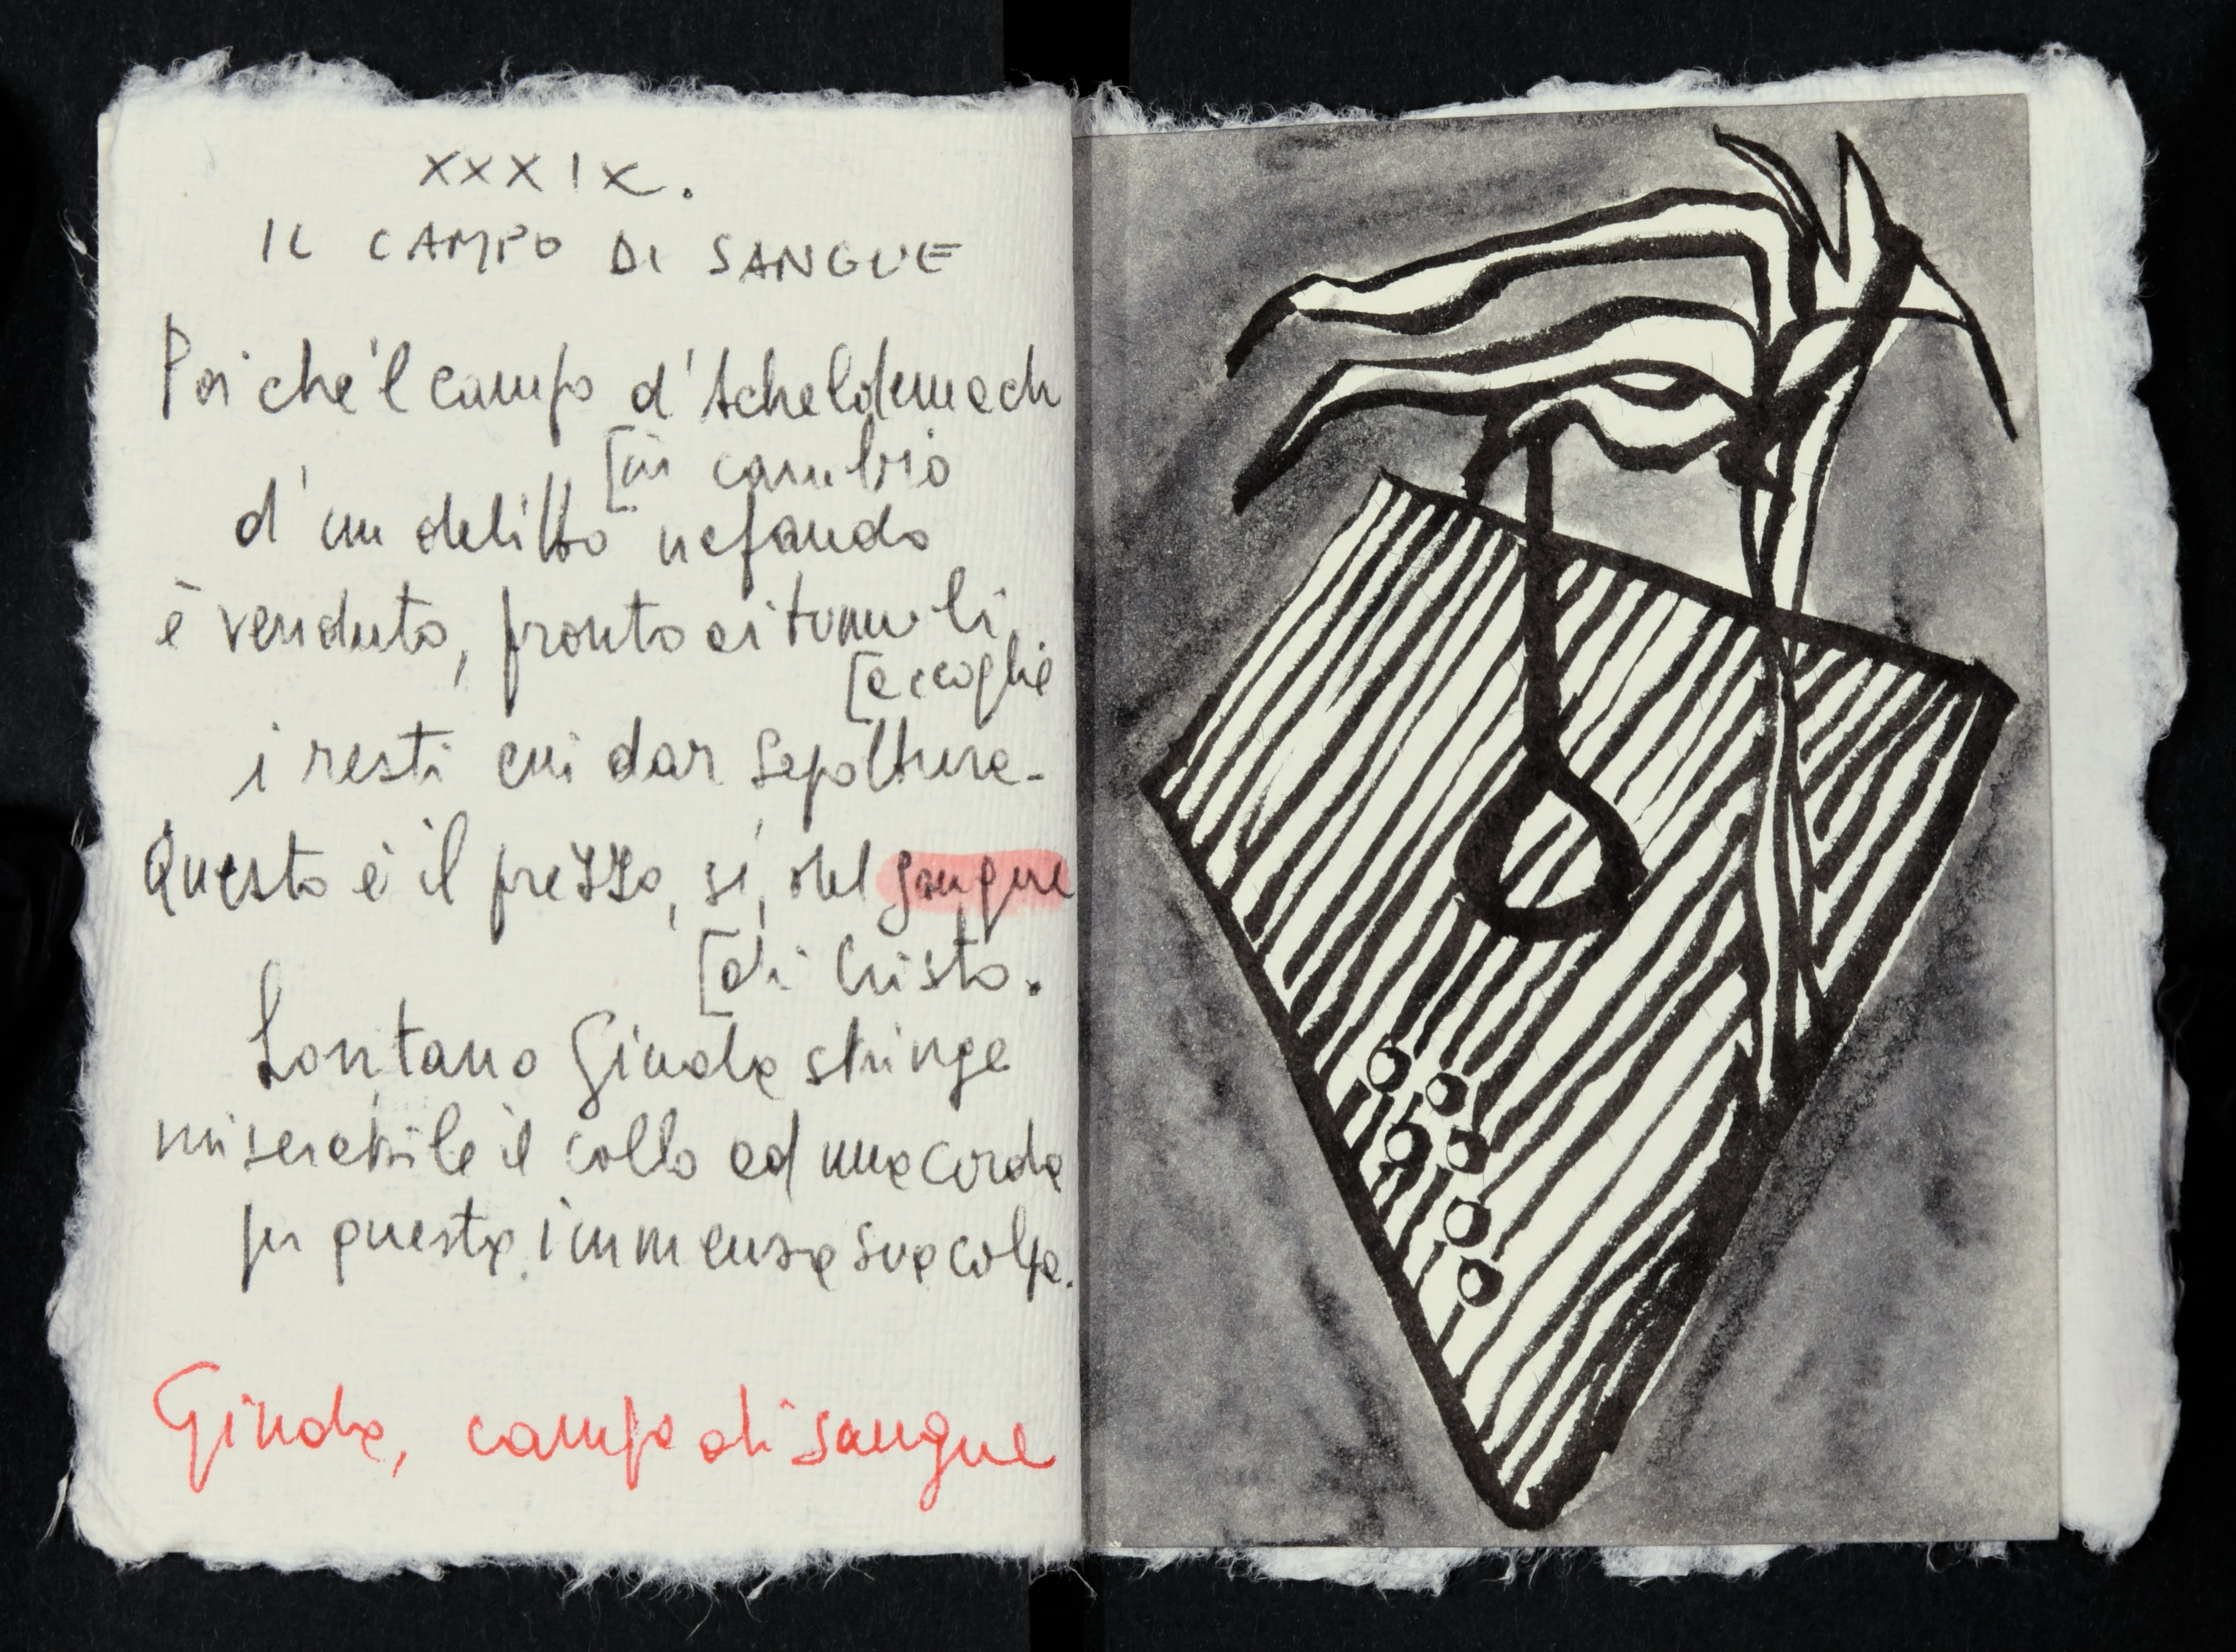 XXXIX.
IL CAMPO DI SANGUE
Poiché 'l campo d'Acheldemach
[in cambio
d'un delitto nefando
è venduto, pronto ai tumuli
[accoglie
i resti cui dar sepolture.
Questo è il prezzo, sì, del sangue
[di Cristo.
Lontano Giuda stringe
miserabile il collo ad una corda
per questa immensa sua colpa.
Giuda, campo di sangue